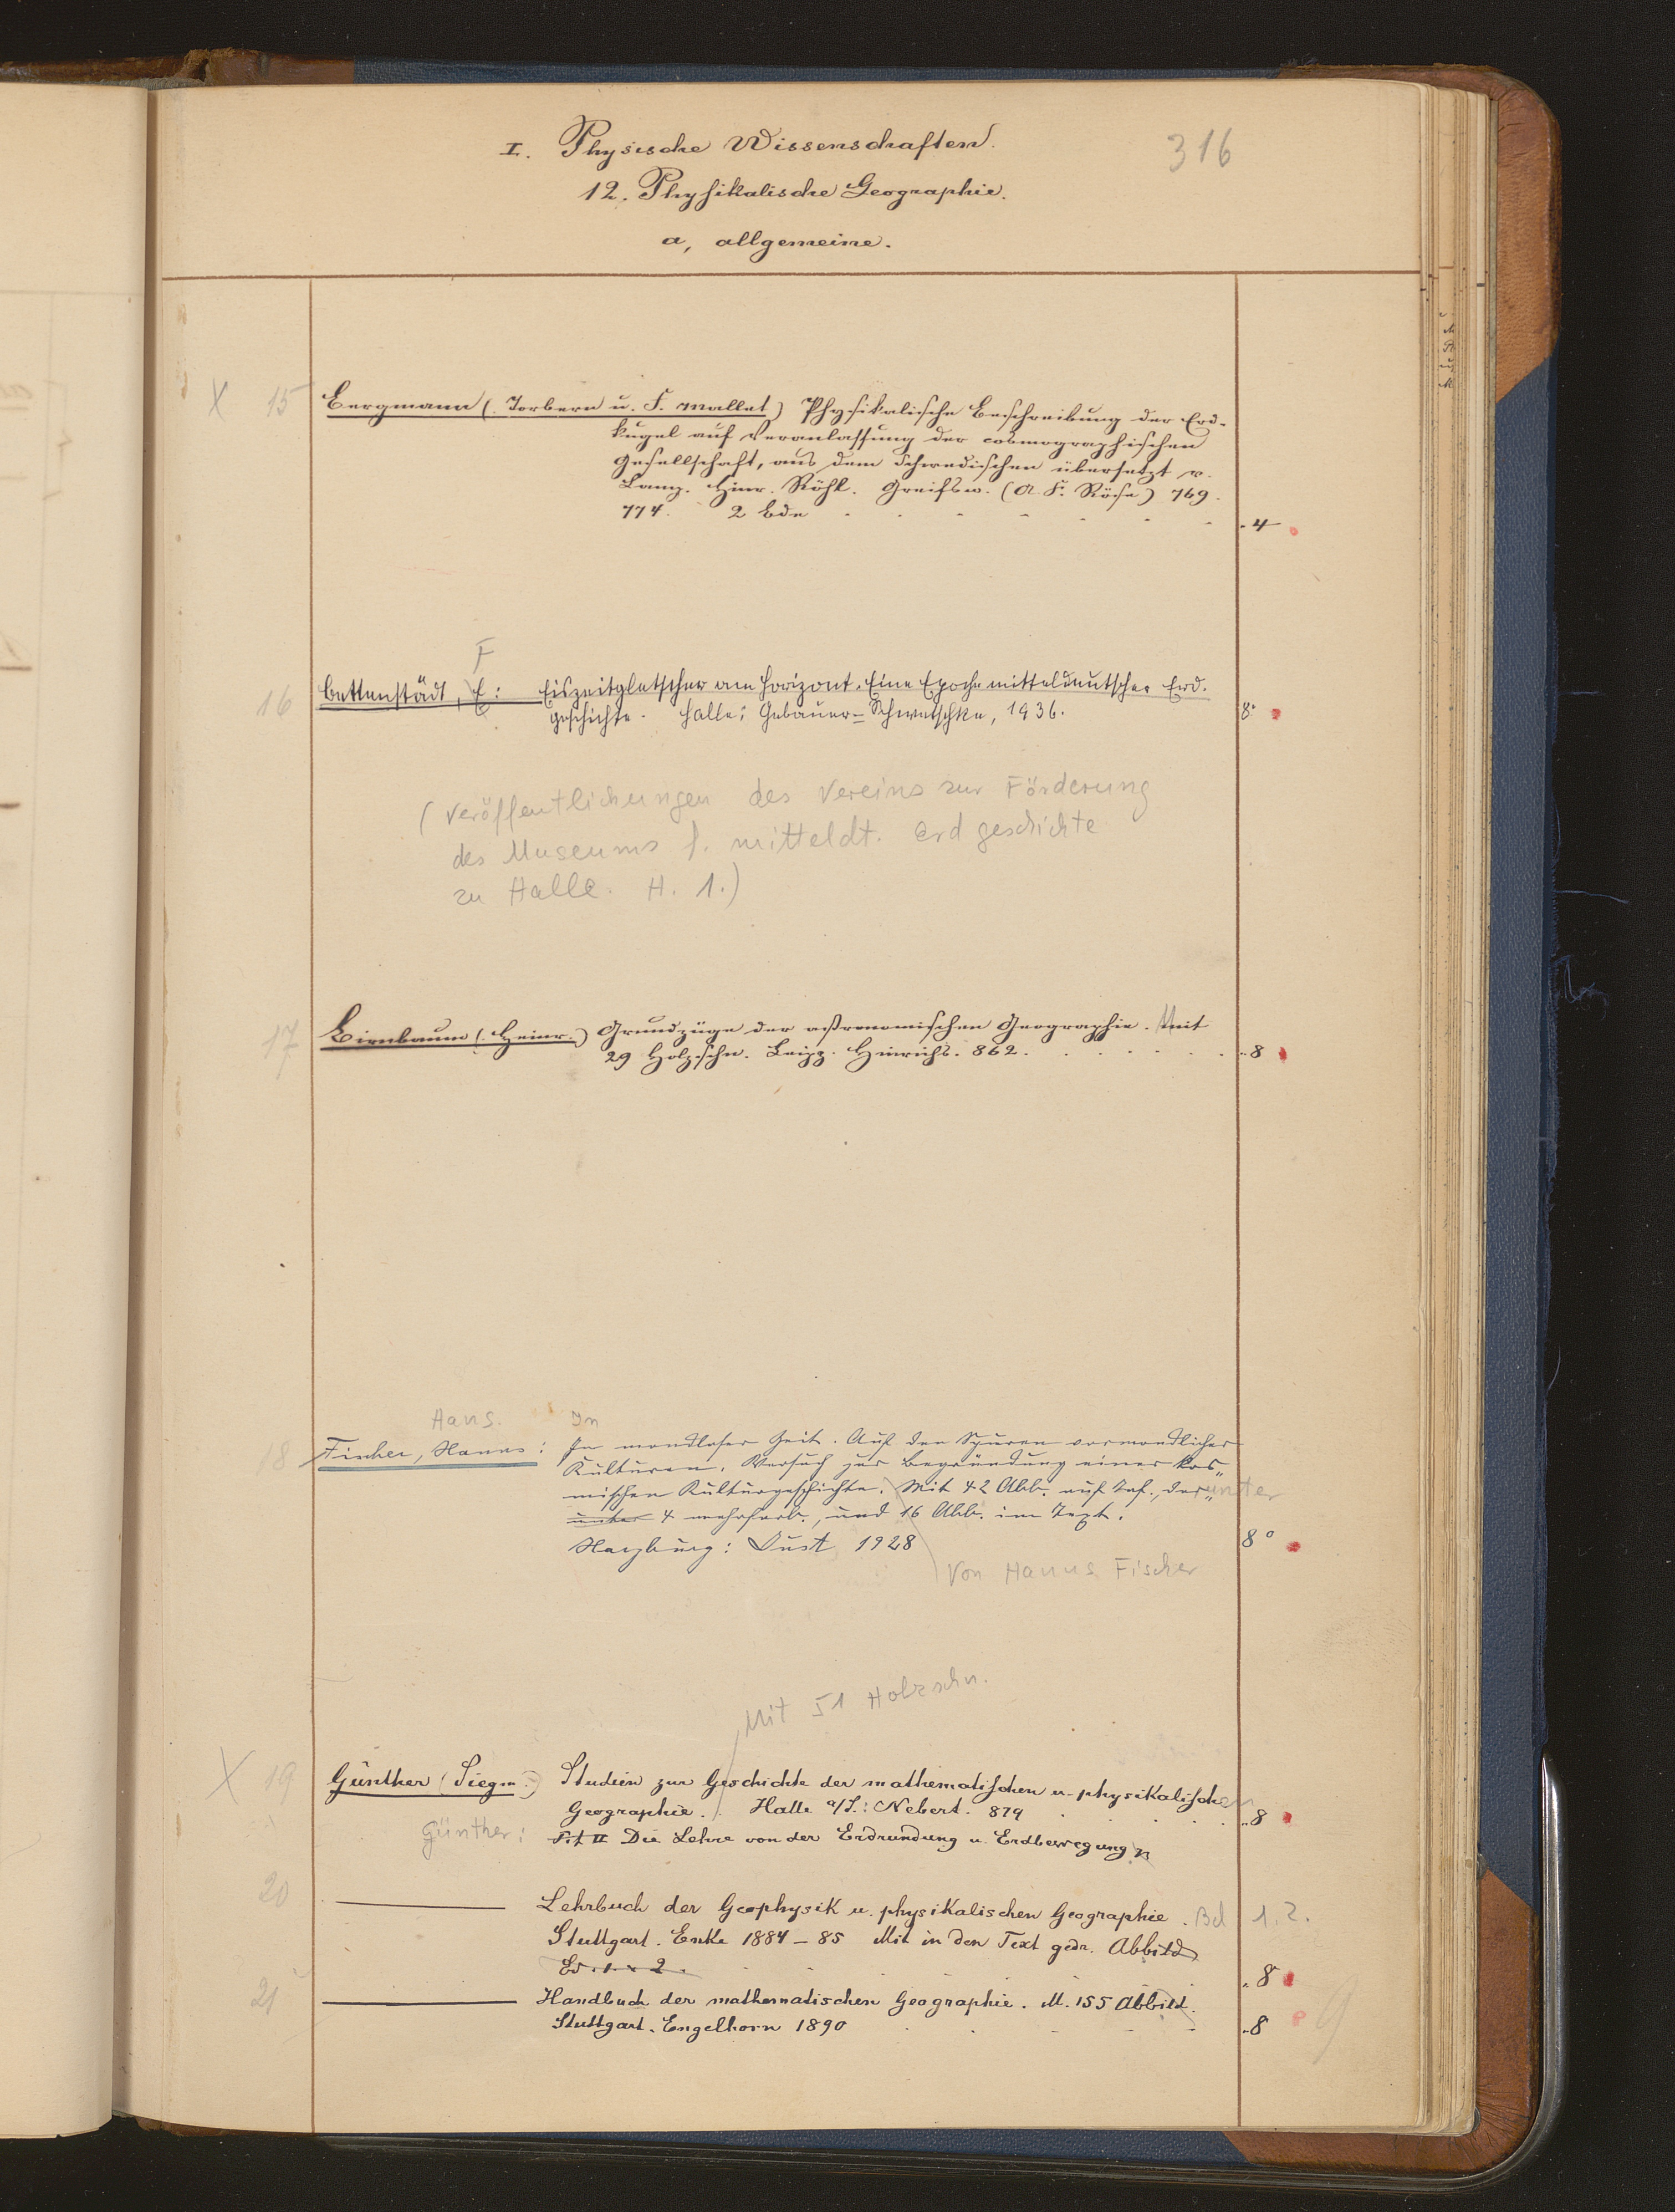 316
I. Physische Wissenschaften.
12. Physikalische Geographie.
a, allgemeine.
X 15 Bergmann (Torbern u. F. Mallet) Physikalische Beschreibung der Erd-
kugel auf Veranlassung der cosmographischen
Gesellschaft, aus dem Schwedischen übersetzt v.
Lamp. Hinr. Röhl. Greifsw. (A. F. Röse) 769.
774. 2 Bde . . . . . . . 4
F
16 Bettenstädt, E: Eiszeitgletscher am Horizont. Eine Epoche mitteldeutscher Erd-
geschichte. Halle: Gebauer=Schwetschke, 1936. 8°
(Veröffentlichungen des Vereins zur Förderung
des Museums f. mitteldt. Erdgeschichte
zu Halle. H. 1.)
17 Birnbaum (Heinr.) Grundzüge der astronomischen Geographie. Mit
29 Holzschn. Leipz. Hinrichs. 862. . . . . . . 8
Hans. In
18 Fischer, Hanns: In mondloser Zeit. Auf den Spuren vormondlicher
Kulturen. Versuch zur Begründung einer kos„
mischen Kulturgeschichte. Mit 42 Abb. auf Taf., dar„unter
unter 4 mehrfarb., und 16 Abb. im Text.
Harzburg: Dust 1928 8°
Von Hanns Fischer
Mit 51 Holzschn.
X 19 Günther (Siegm.) Studien zur Geschichte der mathematischen u. physikalischen
Geographie. Halle a/S.: Nebert. 879 . . . . 8
Günther: Hft II Die Lehre von der Erdrundung u. Erdbewegung
20 ——— Lehrbuch der Geophysik u. physikalischen Geographie. Bd 1. 2.
Stuttgart. Enke 1884–85 Mit in den Text gedr. Abbild
Bd. 1. u 2. . . . . . 8
21 ——— Handbuch der mathematischen Geographie. M. 155 Abbild.
Stuttgart. Engelhorn 1890 . . . . 8